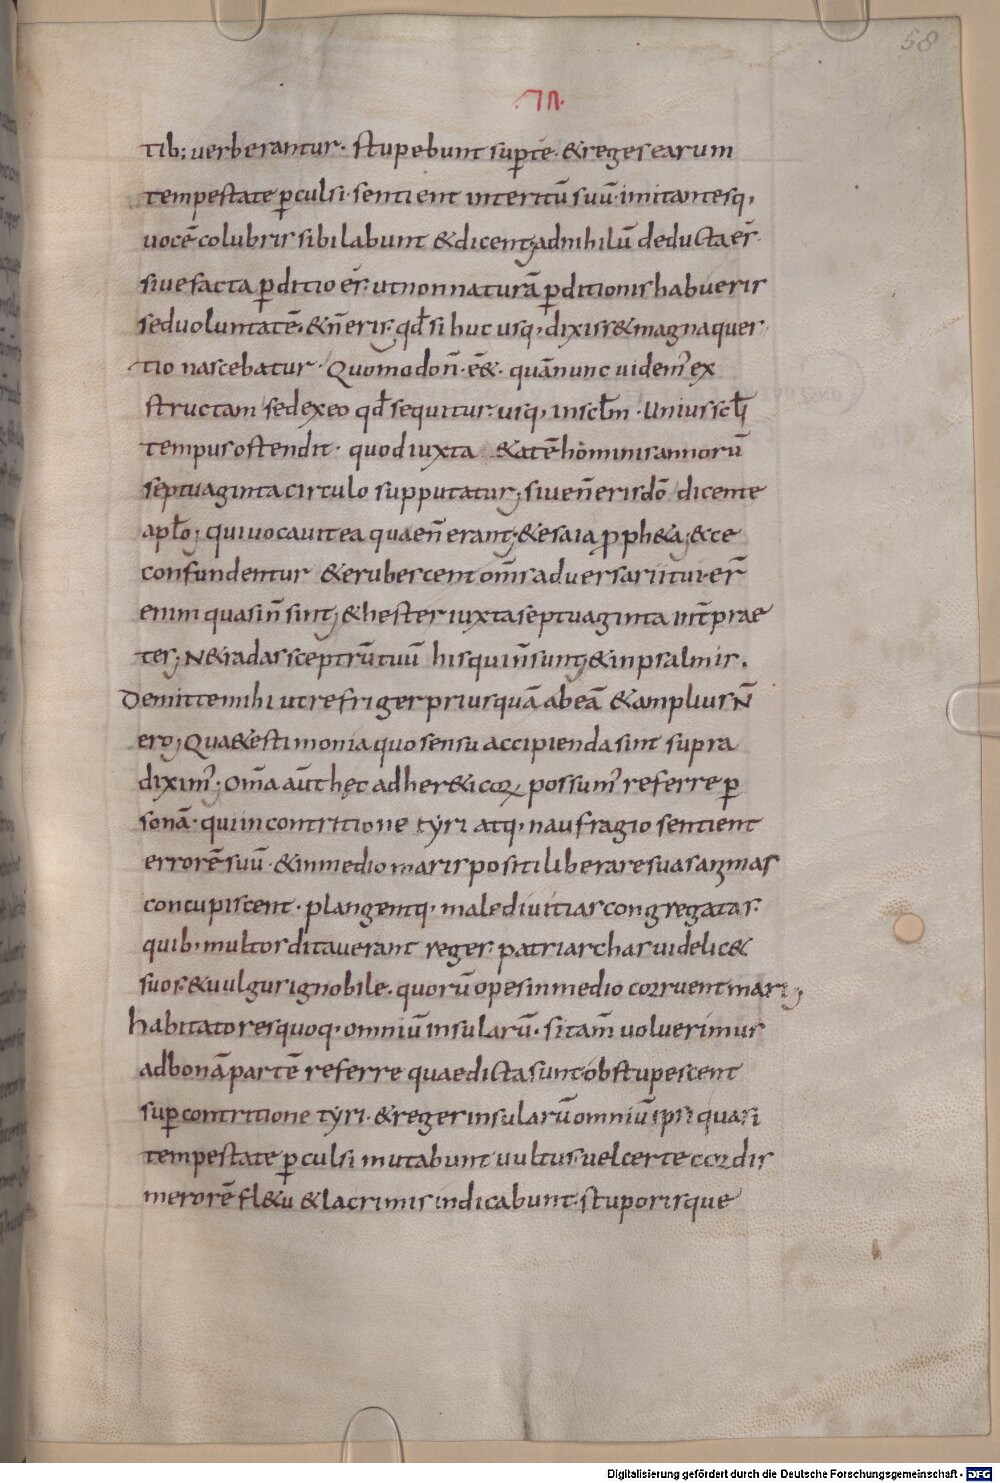 58
VII.
tib; uerberantur. stupebunt sup te. & reges earum
tempestate p̱culsi. sentient interitū suū. imitantesq,
uocē colubris sibilabunt & dicent; adnihilū deducta es̄.
siue facta p̱ditio es̄. ut non naturā p̱ditionis habueris
sed uoluntatē. & n̄ eris. qđ si huc usq, dixiss& magna ques
tio nascebatur. Quomodo n̄. ē&. quā nunc uidem' ex
structam sed ex eo qđ sequitur. usq, in scłm. Unius scłi
tempus ostendit. quod iuxta &atē hominis annorū
septuaginta circulo supputatur; siue n̄ eris dō dicente
apło; qui uocauit ea quae n̄ erant; & esaia proph&a; ecce
confundentur & erubescent om̄s aduersarii tui. er̄
enim quasi n̄ sint; & hester iuxta septuaginta int̄prae
tes; N& radas sceptrū tuū his qui n̄ sunt; & in psalmis.
Demitte mihi ut refriger priusquā abeā & amplius N̄
ero; Quae testimonia quo sensu accipienda sint supra
dixim'; Om̄a aūt hęc ad her&icoꝝ possum' referre p̱
sonā. qui in contritione tyri atq, naufragio sentient
errorē suū. & in medio maris positi liberare suas animas
concupiscent. plangentq, male diuitias congregatas.
quib, multos ditauerant reges. patriarchas uidelic&
suos. & uulgus ignobile. quorū opes in medio corruent maris;
habitatores quoq. omniū insularū. si tam̄ uoluerimus
ad bonā partē referre quae dicta sunt obstupescent
sup contritione tyri. & reges insularū omniū ipsi quasi
tempestate p̱culsi mutabunt uultus uel certe cordis
merorē fl&u & lacrimis indicabunt. stuporisque
Digitalisierung gefördert durch die Deutsche Forschungsgemeinschaft - DFG